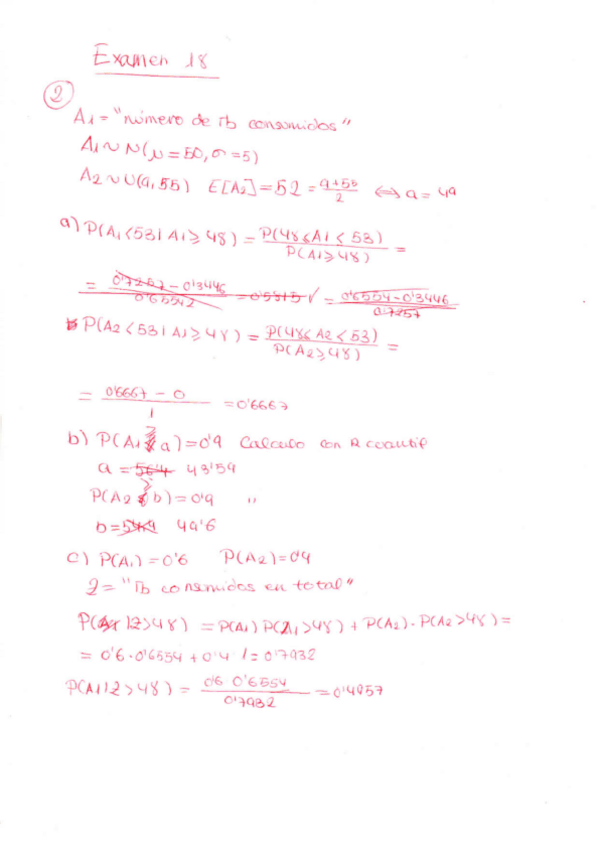 Examen 18
2
A1 = "número de Tb consumidos"
A1 ~ N(μ = 50, σ = 5)
A2 ~ U(a, 55) E[A2] = 52 = a+55/2 ⟺ a = 49
a) P(A1 < 53 | A1 ⩾ 48) = P(48 ⩽ A1 < 53) / P(A1 ⩾ 48) =
= 0'7257 - 0'3446 / 0'65542 = 0'5815 ✓ = 0'6554 - 0'3446 / 0'7257
P(A2 < 53 | A2 ⩾ 48) = P(48 ⩽ A2 < 53) / P(A2 ⩾ 48) =
= 0'6667 - 0 / 1 = 0'6667
b) P(A1 ⩾ a) = 0'9 Calculo con R cuantil
a = 56'4 43'59
P(A2 ⩾ b) = 0'9 "
b = 54'4 49'6
c) P(A1) = 0'6 P(A2) = 0'4
Z = "Tb consumidos en total"
P(Z > 48) = P(A1) P(A1 > 48) + P(A2) · P(A2 > 48) =
= 0'6 · 0'6554 + 0'4 · 1 = 0'7932
P(A1 | Z > 48) = 0'6 · 0'6554 / 0'7932 = 0'4957